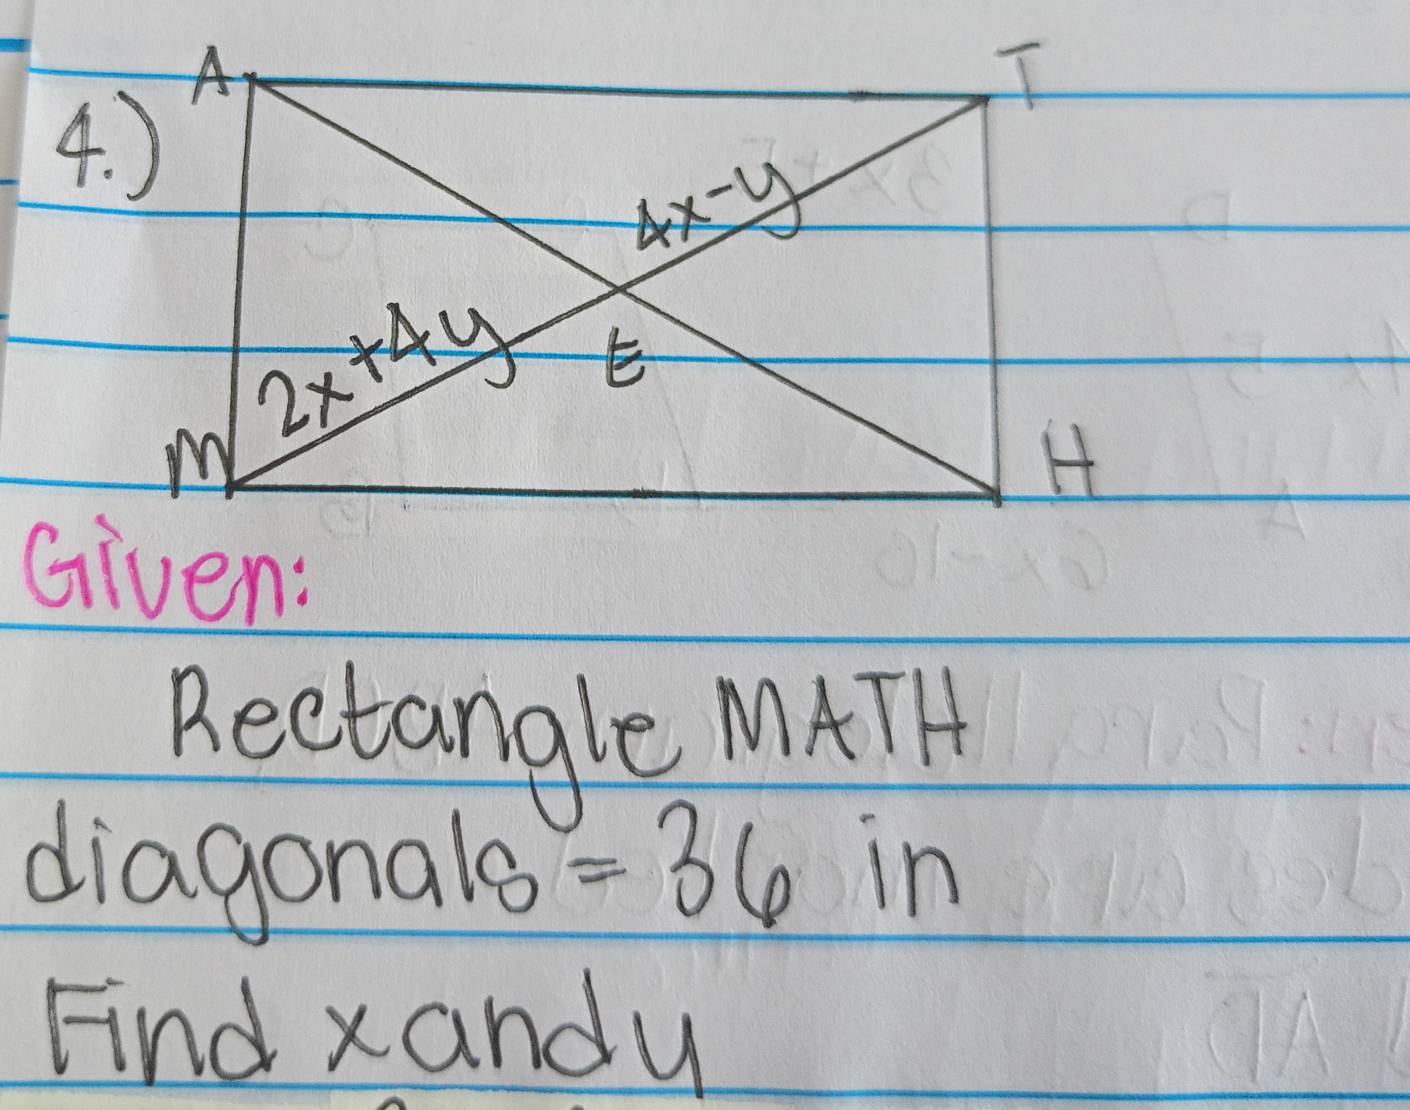 A T
4.)
4x-y
2x+4y E
M H
Given:
Rectangle MATH
diagonals = 36 in
Find x and y